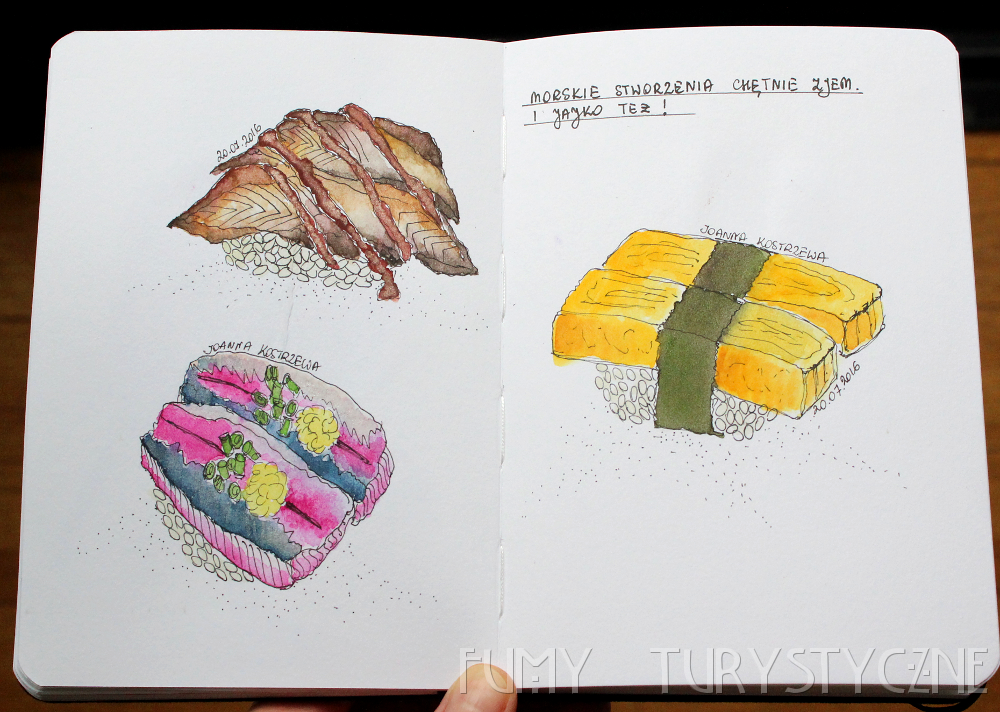 20.07.2016
JOANNA KOSTRZEWA
MORSKIE STWORZENIA CHĘTNIE ZJEM.
I JAJKO TEŻ!
JOANNA KOSTRZEWA
20.07.2016
FUMY TURYSTYCZNE